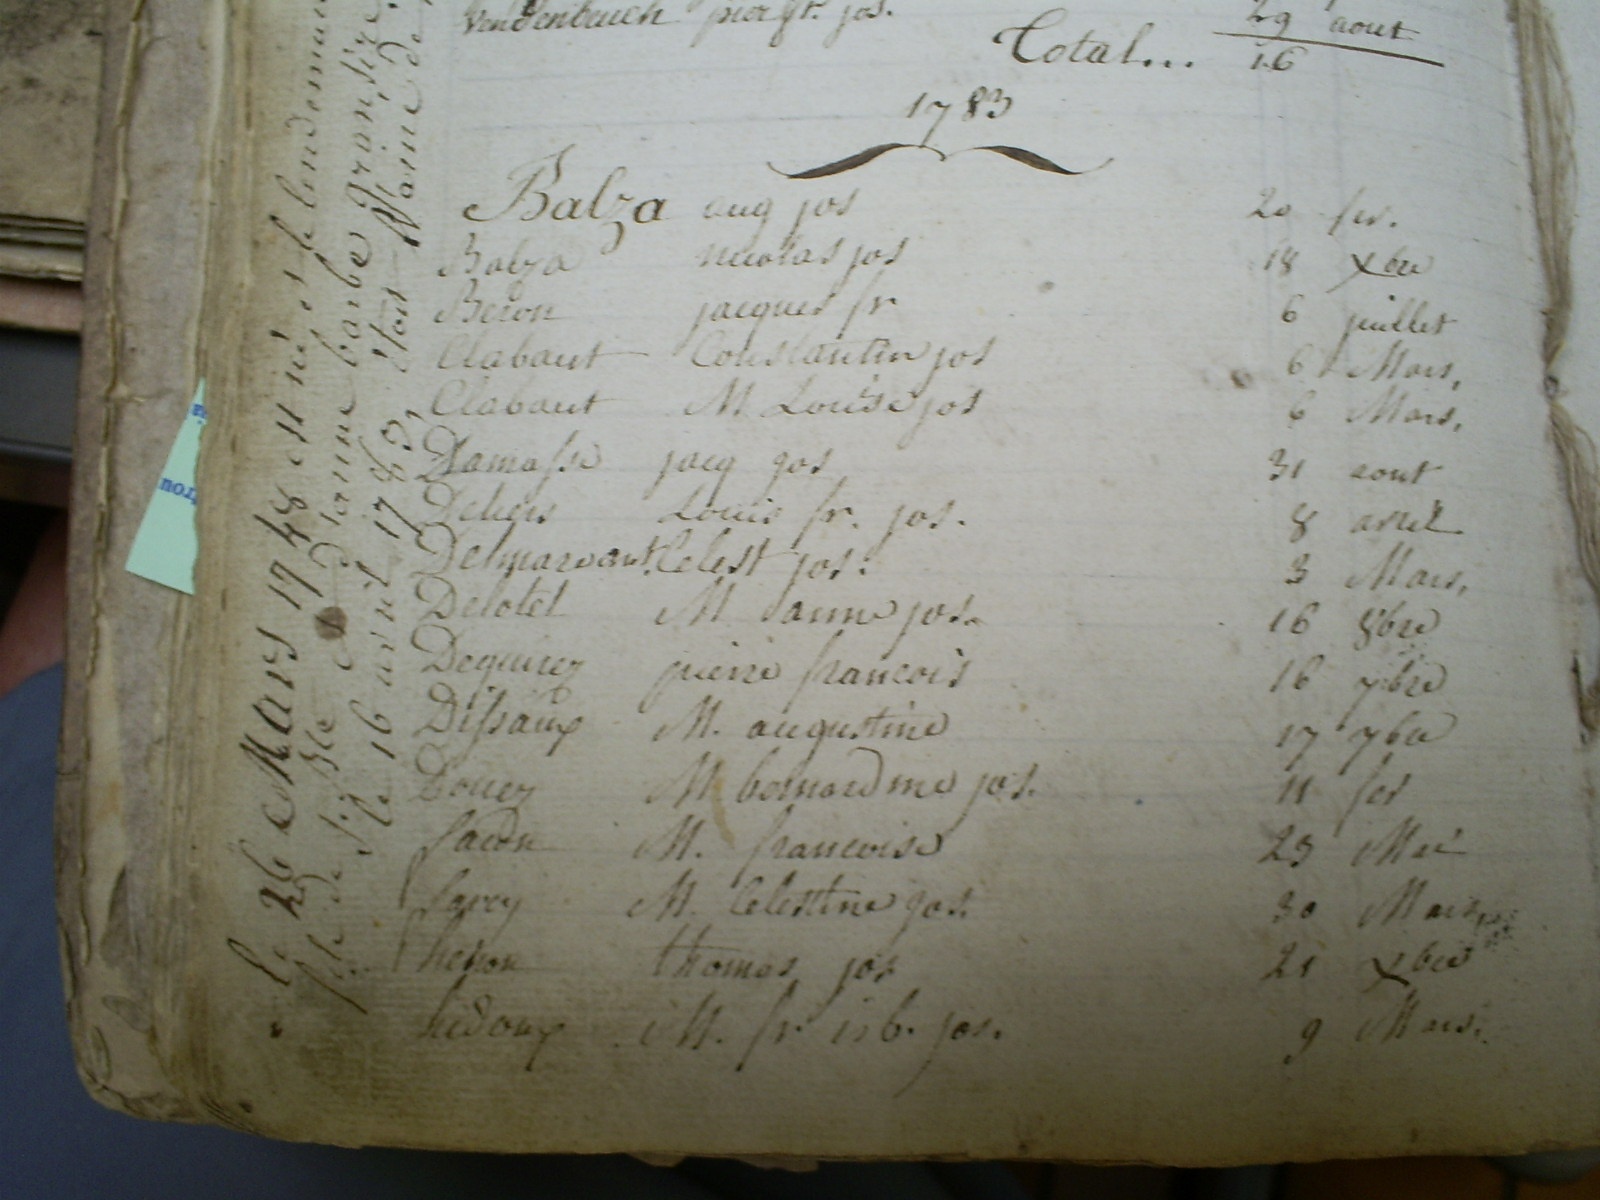 Vandenbeuch pier fr. jos. 29 aout
Total... 16
1783
Balza aug jos 20 fer.
Balza nicolas jos 18 xbre
Beron jacques fr 6 juillet
Clabaut Constantin jos 6 Mars,
Clabaut M Louise jos 6 Mars,
Damasse jacq jos 31 aout
Louis fr. jos. 8 avril
Delmarvant Celest jos. 3 Mars,
Delotel M anne jos. 16 8bre
Dequirez pierre francois 16 7bre
Dissaux M. augustine 17 7bre
Douez M bernardine jos. 11 fer
facon M. francoise 23
farcy M. Celestine jos. 30 Mars
heron thomas jos 21 xbre
ledoux M. fr isb. jos. 9 Mars.
Le 26 Mars 1748 est né, et le lendemain
de Janne barbe
le 16 avril 1783,